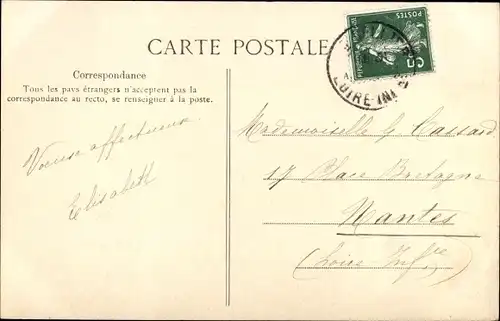 CARTE POSTALE
Correspondance
Tous les pays étrangers n'acceptent pas la
correspondance au recto, se renseigner à la poste.
affectueux
Elisabeth
POSTES
LOIRE-INF
Mademoiselle G. Cassard
17 Place Bretagne
Nantes
(Loire Infre)